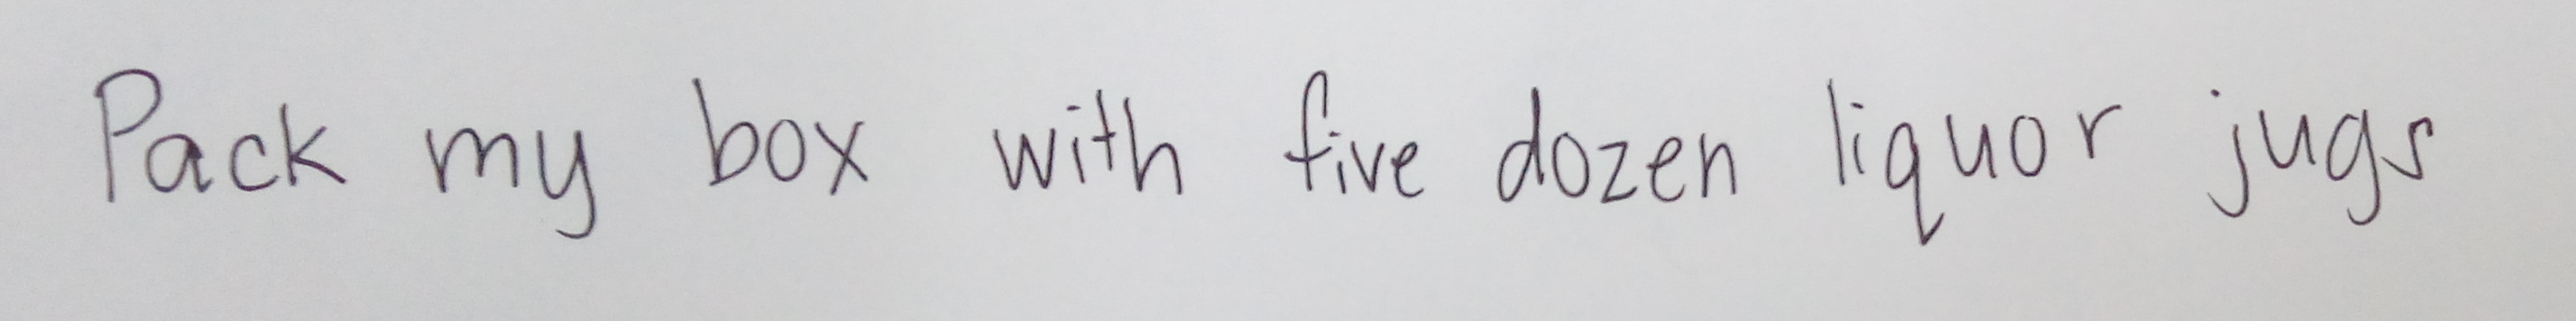 Pack my box with five dozen liquor jugs